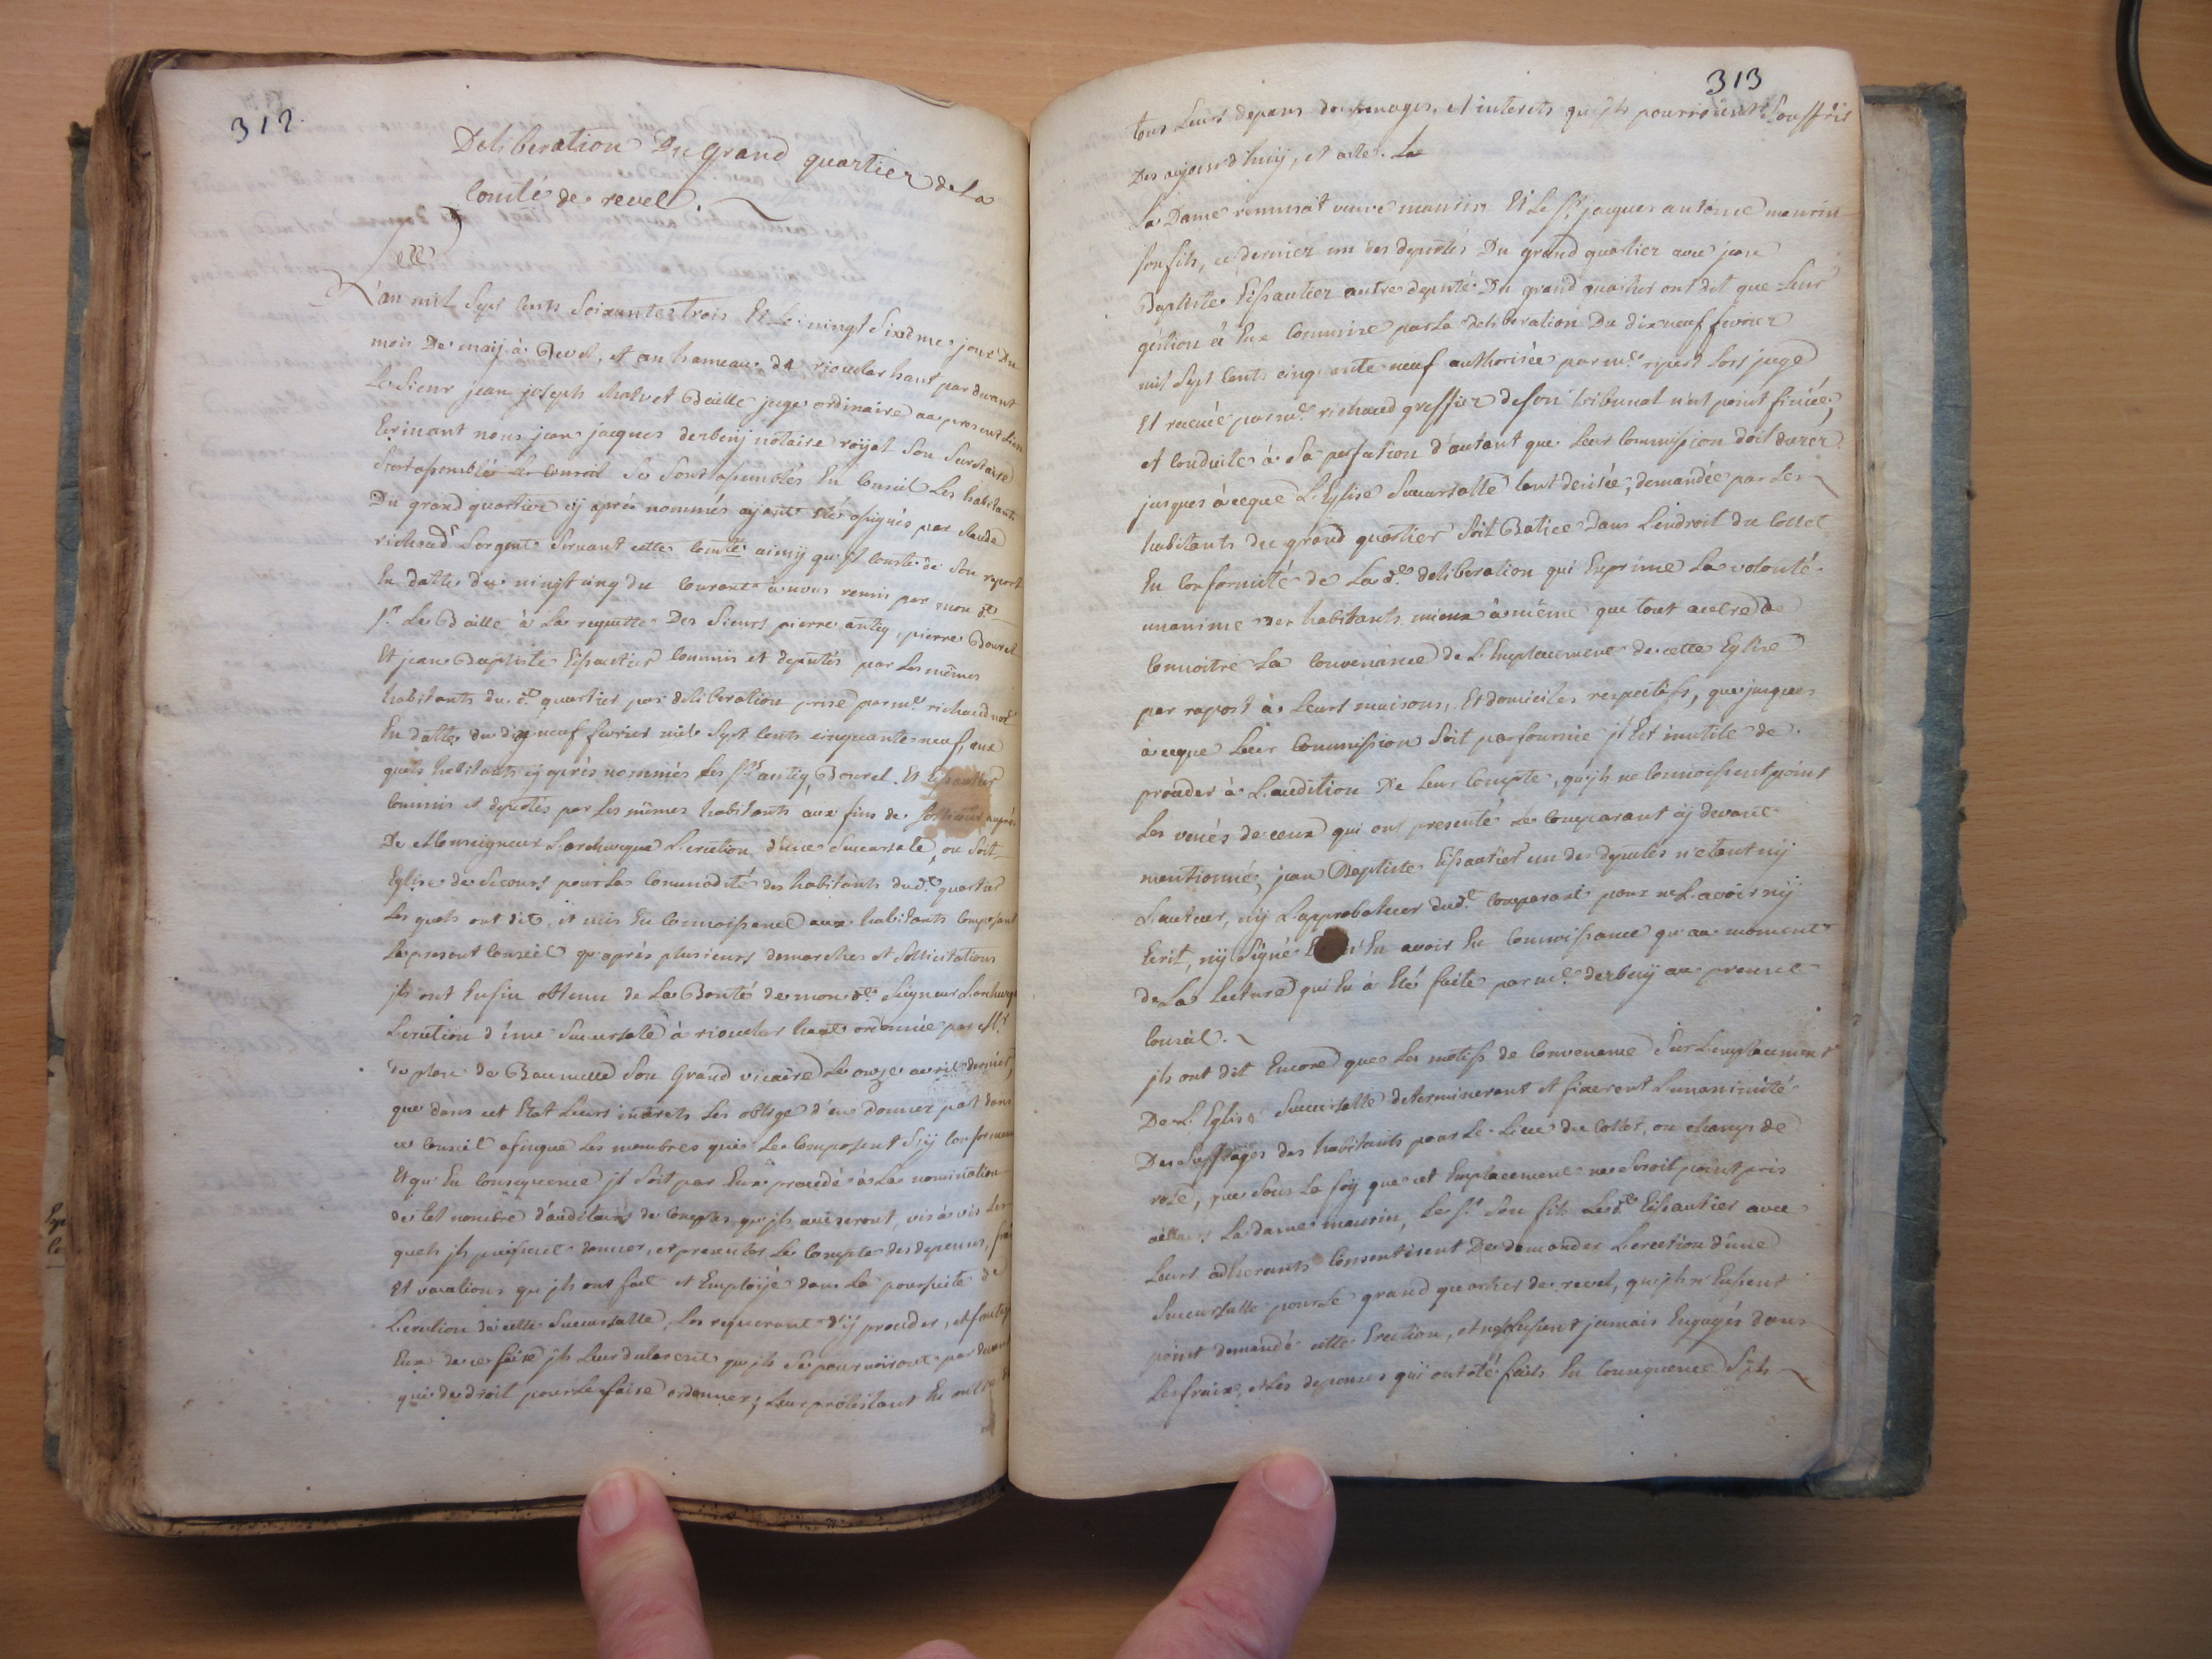 312.
Deliberation Du grand quartier de La
Comté de revel.
L'an mil Sept Cents Soixante trois Et Le vingt Sixième jour Du
mois De maij à Revel, et au hameau de rioucler haut par devant
Le Sieur jean joseph Baille juge ordinaire au present Lieu
Ecrivant nous jean jacques derbeij notaire roijal Son
Sont assemblé Le Conseil Se Sont assemblés En Conseil Les habitants
Du grand quartier cij après nommés ajant étés assignés par Claude
richaud Sergent Servant cette Comté ainsij qu'il Conste de Son raport
En datte du vingt cinq du Courant à nous remis par mon d.
Sr. Le Baille à La requette Des Sieurs pierre antiq, pierre Bouret
Et jean Baptiste Eissautier Commis et deputés par Les mêmes
habitants du d. quartier par deliberation prise par me. richaud not.
En datte du dix neuf fevrier mil Sept Cents cinquante neuf, aux
quels habitants cij après nommés Les Srs. antiq, Bouret Et Eissautier
Commis et deputés par Les mêmes habitants aux fins de auprès
De Monseigneur L'archeveque L'erection d'une Succursale, ou Soit
Eglise de Secours pour La Commodité des habitants dud. quartier
Les quels ont dit, et mis En Connoissance aux habitants Composant
Le present Conseil qu'après plusieurs demarches et Sollicitations
jls ont Enfin obtenu de La Bonté de mon d. Seigneur L'archeveq
L'erection d'une Succursale à rioucler haut ordonnée par Mr.
de Baumelle Son Grand vicaire Le onze avril dernier,
que dans cet Etat Leurs interets Les oblige d'en donner part dans
ce Conseil afinque Les membres qui Le Composent S'ij Conforment
Et qu'En Consequence jl Soit par Eux procedé à La nomination
de tel nombre d'auditeurs de Comptes qu'jls aviseront, vis à vis Les
quels jls puissent donner, et presenter Le Compte des depenses, frais
Et vacations qu'jls ont fait et Emploijé dans La poursuite de
L'erection de cette Succursalle, Les requerant d'ij proceder, et faute
Eux de ce faire jls Leur declarent qu'jls Se pourvoiront par devant
qui de droit pour Le faire ordonner; Leur protestant En outre de
313
tous Leurs depans domenages, et interets qu'jls pourroient Souffrir
Des aujourd'huij, et acte. La
La Dame remusat veuve maurin Et Le Sr. jacques antoine maurin
Son fils, ce dernier un des deputés Du grand quartier avec jean
Baptiste Eissautier autre deputé Du grand quartier ont dit que Leur
gestion à Eux Commise par La deliberation Du dix neuf fevrier
mil Sept Cents cinquante neuf authorisée par me. ripert Lors juge
Et recuée par me. richaud greffier de Son tribunal n'est point finiée,
et Conduite à Sa perfection d'autant que Leur Commission doit durer
jusques à ceque L'Eglise Succursalle tant desirée, demandée par Les
habitants du grand quartier Soit Batiee Dans L'endroit du Collet
En Conformité de La d. deliberation qui Exprime La volonté
unanime des habitants mieux à même que tout autre de
Connoitre La Convenance de L'Emplacement de cette Eglise
par raport à Leurs maisons, Et domiciles respectifs, que jusques
à ceque Leur Commission Soit parfournie jl Est inutile de
proceder à L'audition De Leur Compte, qu'jls ne Connoissent point
Les veues de ceux qui ont presenté Le Comparant cij devant
mentionné; jean Baptiste Eissautier un des deputés n'etant nij
L'auteur, nij L'approbateur dud. Comparant pour ne L'avoir nij
Ecrit, nij Signé En avoir Eu Connoissance qu'au moment
de La Lecture qui En à Eté faite par me. derbeij au present
Conseil.
jls ont dit Encore que Les motifs de Convenance Sur L'emplacement
De L'Eglise Succursalle determinerent et fixerent L'unanimité
Des Suffrages des habitants pour Le Lieu du Collet, ou champ de
rose, que Sous La foij que cet Emplacement ne Seroit point pris
ailleurs La dame maurin, Le Sr. Son fils Led. Eissautier avec
Leurs adherants Consentirent De demander L'erection d'une
Succursalle pour Le grand quartier de revel, qu'jls n'Eussent
point demandé cette Erection, et ne Se fussent jamais Engagés dans
Les fraix, et Les depenses qui ont été faits En Consequence S'jls